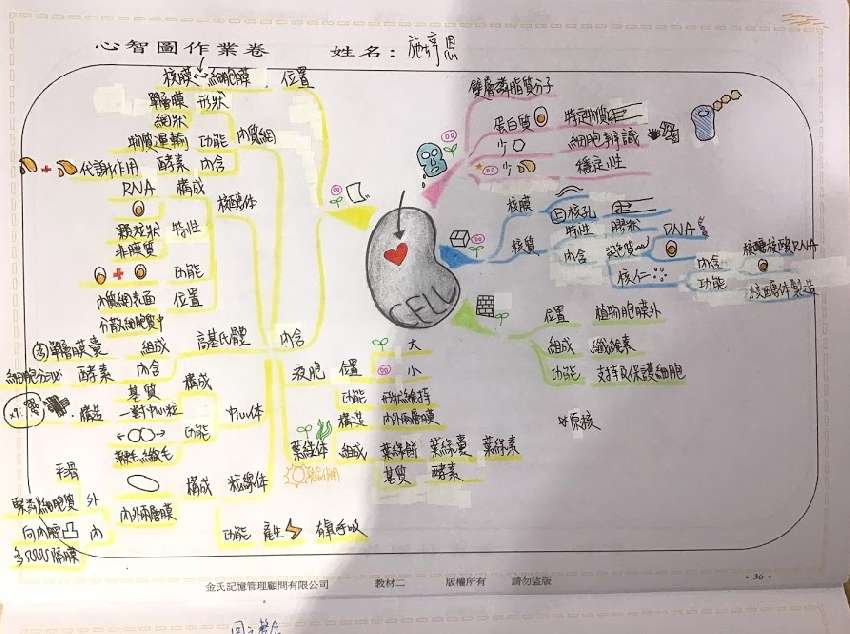 心智圖作業卷 姓名：施婷恩
核膜 細胞膜 位置
單層膜 形狀
網狀
物質運輸 功能 內質網
代謝作用 酵素 內含
RNA 構成 核醣體
顆粒狀 特性
非膜質
功能
內質網表面 位置
分散細胞質中
單層膜囊 組成 高基氏體 內含
細胞分泌 酵素 內含
基質 構成
構造 一對中心粒 中心體
功能
鞭毛纖毛
平滑 構成 粒線體
緊鄰細胞質 外
內外兩層膜
向內腔凸 內
功能 產生 有氧呼吸
液胞 位置 大
小
功能 形狀維持
構造 內外兩層膜
葉綠体 組成 葉綠餅 葉綠囊 葉綠素
基質 酵素
雙層磷脂質分子
蛋白質 特定物質
少 細胞辨識
少 穩定性
核膜 核孔
核質 特性 膠狀
內含 染色質 DNA
核仁 內含 核醣核酸RNA
功能 核醣体製造
位置 植物胞膜外
組成 纖維素
功能 支持及保護細胞
CELL
原核
金氏記憶管理顧問有限公司 教材二 版權所有 請勿盜版
- 36 -